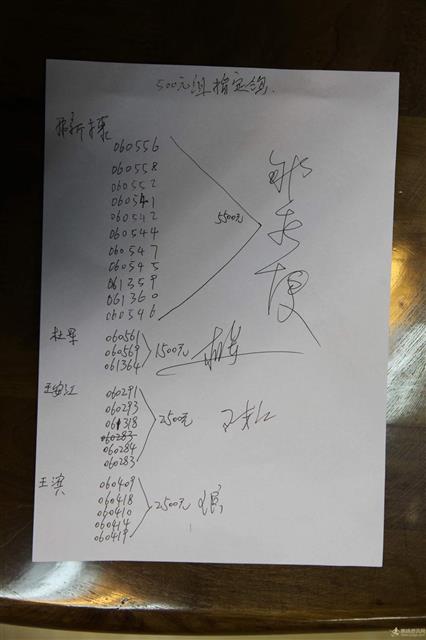 500元组指定鸽.
060556
060558
060552
060541
060542
060544
060547
060545
061359
061360
060546
5500元
杜军
060561
060569
061364
1500元
王安江
060291
060293
061318
060283
060284
060283
2500元
王滨
060409
060418
060410
060414
060419
2500元